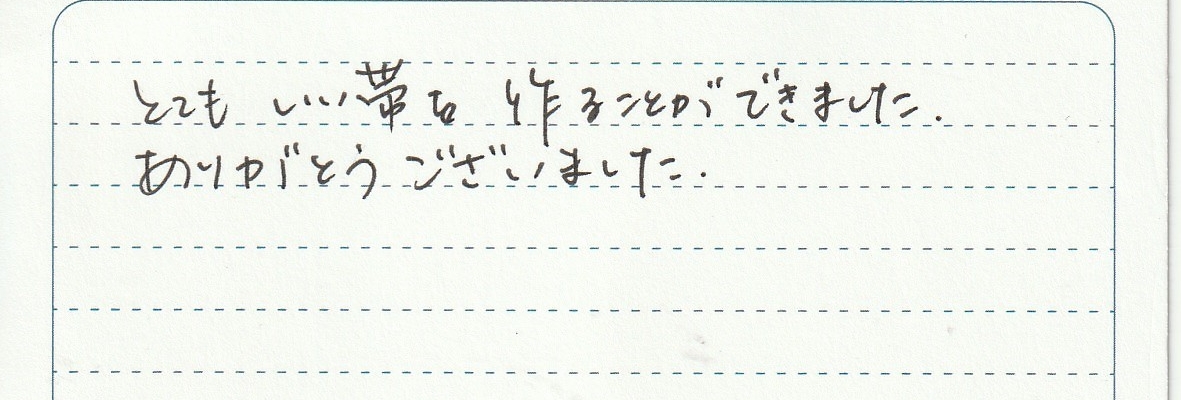 とてもいい帯を作ることができました.
ありがとうございました.